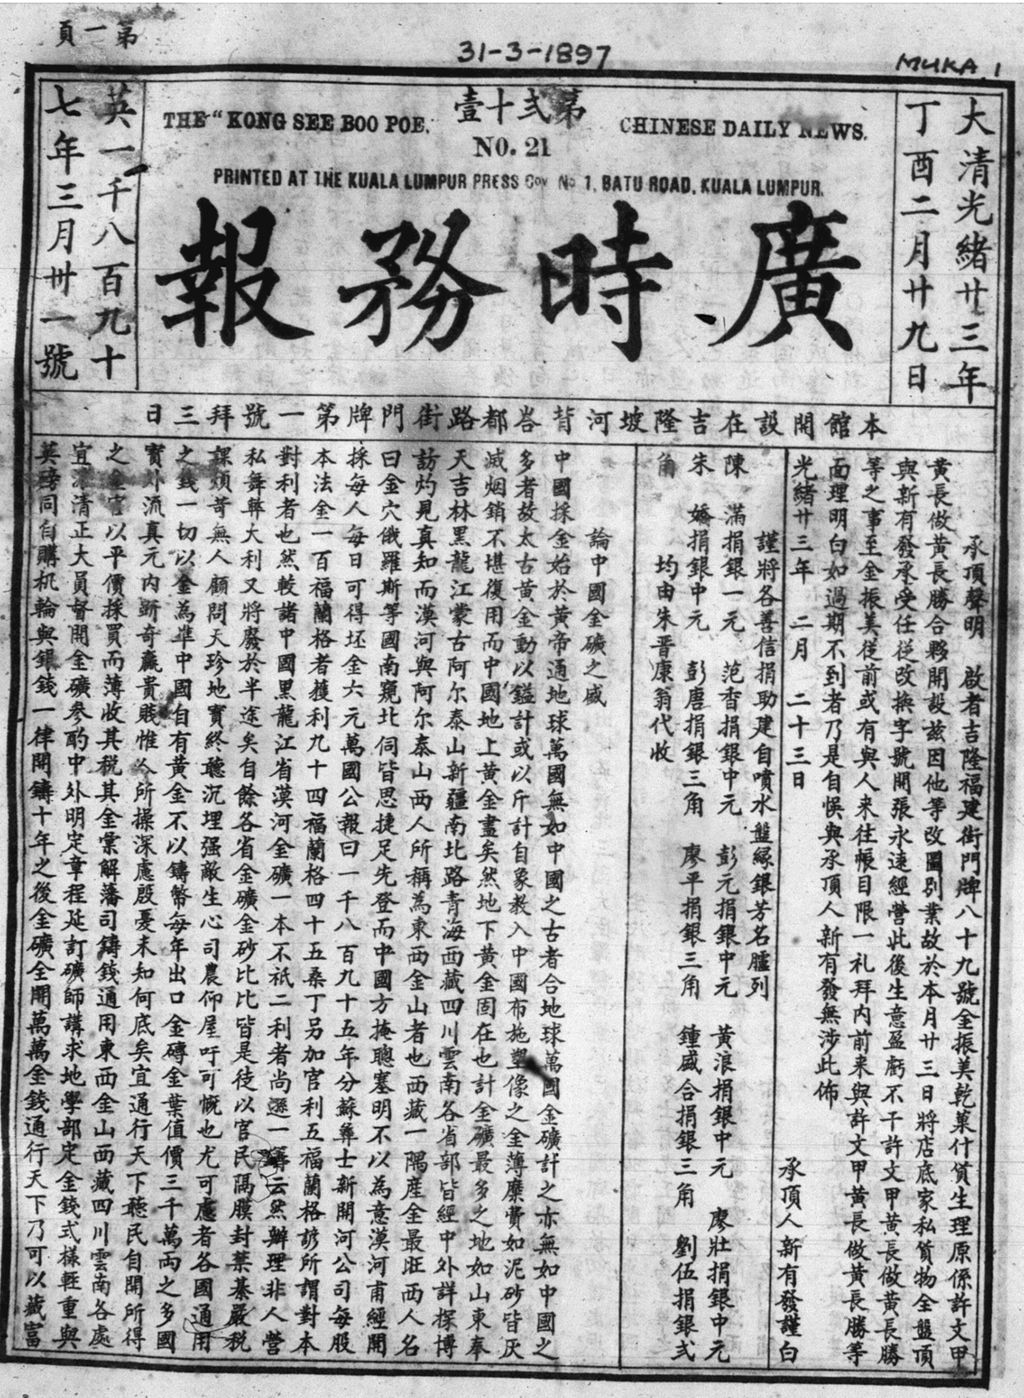 第一頁
31-3-1897
MUKA 1
大清光緒廿三年
丁酉二月廿九日
第弍十壹
THE "KONG SEE BOO POE,
NO. 21
CHINESE DAILY NEWS.
PRINTED AT THE KUALA LUMPUR PRESS Coy. No 1, BATU ROAD, KUALA LUMPUR.
廣時務報
英一千八百九十
七年三月卅一號
本館開設在吉隆坡河背峇都路街門牌第一號拜三日
承頂聲明 啟者吉隆福建街門牌八十九號金振美乾菓什貨生理原係許文甲
黃長做黃長勝合夥開設茲因他等改圖別業故於本月廿三日將店底家私貨物全盤頂
與新有發承受任從改換字號開張永遠經營此後生意盈虧不干許文甲黃長做黃長勝
等之事至金振美從前或有與人来往帳目限一礼拜内前来與許文甲黃長做黃長勝等
面理明白如過期不到者乃是自悞與承頂人新有發無涉此佈
光緒廿三年 二月 二十三日 承頂人新有發謹白
謹將各善信捐助建自噴水盤緣銀芳名臚列
陳滿捐銀一元 范香捐銀中元 彭元捐銀中元 黃浪捐銀中元 廖壯捐銀中元
朱嬌捐銀中元 彭唐捐銀三角 廖平捐銀三角 鍾盛合捐銀三角 劉伍捐銀弍
角 均由朱晋康翁代收
論中國金礦之盛
中國採金始於黃帝通地球萬國無如中國之古者合地球萬國金礦計之亦無如中國之
多者故太古黃金動以鎰計或以斤計自象教入中國布施塑像之金薄糜費如泥砂皆灰
滅烟銷不堪復用而中國地上黃金盡矣然地下黃金固在也計金礦最多之地如山東奉
天吉林黑龍江蒙古阿尔泰山新疆南北路青海西藏四川雲南各省部皆經中外詳探博
訪灼見真知而漠河與阿尔泰山西人所稱為東西金山者也西藏一隅産金最旺西人名
曰金穴俄羅斯等國南窺北伺皆思捷足先登而中國方掩聰塞明不以為意漠河甫經開
採每人每日可得坯金六元萬國公報曰一千八百九十五年分蘇彝士新開河公司每股
本法金一百福蘭格者獲利九十四福蘭格四十五桑丁另加官利五福蘭格諺所謂對本
對利者也然較諸中國黑龍江省漠河金礦一本不祇二利者尚遜一籌云然辦理非人營
私舞弊大利又將廢於半途矣自餘各省金礦金砂比比皆是徒以官民隔膜封禁綦嚴税
課煩苛無人顧問天珍地寶終聽沉埋强敵生心司農仰屋吁可慨也尤可慮者各國通用
之錢一切以金為準中國自有黃金不以鑄幣每年出口金磚金葉值價三千萬両之多國
寳外流真元内斷奇贏貴賤惟人所操深慮殷憂未知何底矣宜通行天下聽民自開所得
之金官以平價採買而薄收其税其金彙解藩司鑄錢通用東西金山西藏四川雲南各處
宜 清正大員督開金礦參酌中外明定章程延訂礦師講求地學部定金錢式樣輕重與
英鎊同自購机輪與銀錢一律開鑄十年之後金礦全開萬萬金錢通行天下乃可以藏富